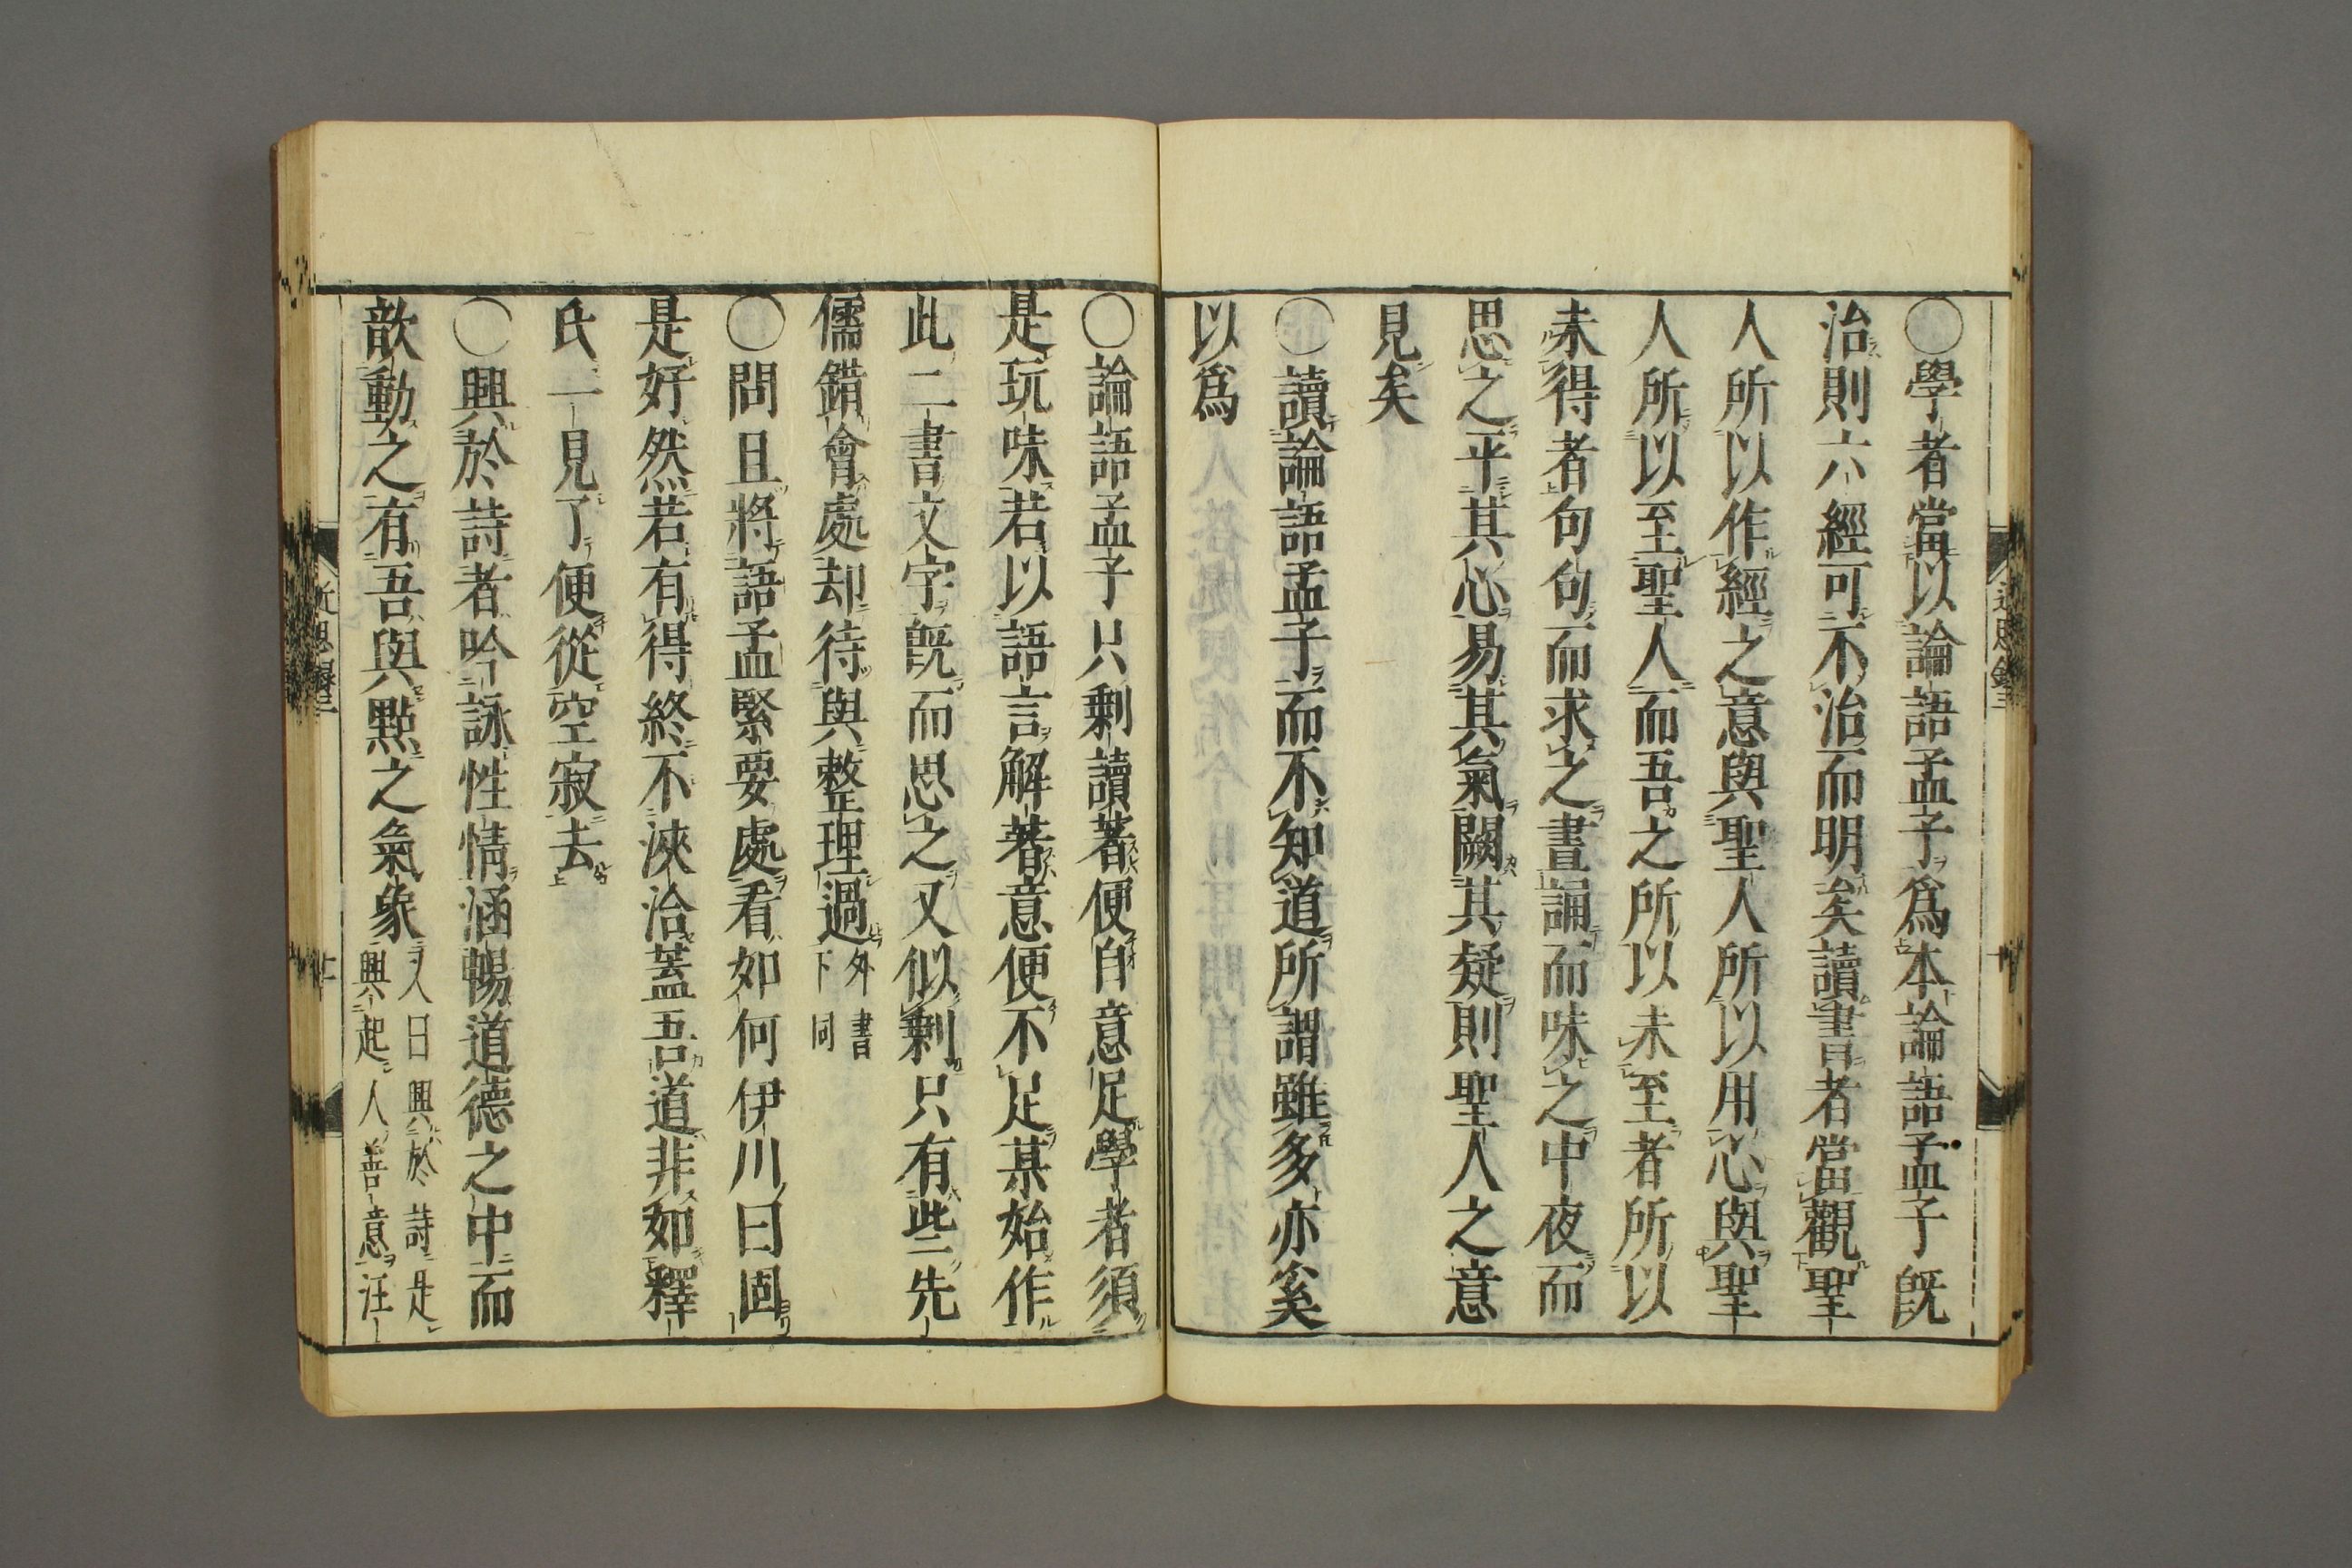 〇學者當以論語孟子爲本論語孟子既
治則六經可不治而明矣讀書者當觀聖
人所以作經之意與聖人所以用心與聖
人所以至聖人而吾之所以未至者所以
未得者句句而求之晝誦而味之中夜而
思之平其心易其氣闕其疑則聖人之意
見矣
〇讀論語孟子而不知道所謂雖多亦奚
以爲
〇論語孟子只剩讀著便自意足學者須
是玩味若以語言解著意便不足某始作
此二書文字既而思之又似剩只有些先
儒錯會處却待與整理過外書
下同
〇問且將語孟緊要處看如何伊川曰固
是好然若有得終不浹洽蓋吾道非如釋
氏一見了便從空寂去
〇興於詩者吟詠性情涵暢道德之中而
歆動之有吾與點之氣象又曰興於詩是
興起人善意汪
近思錄三